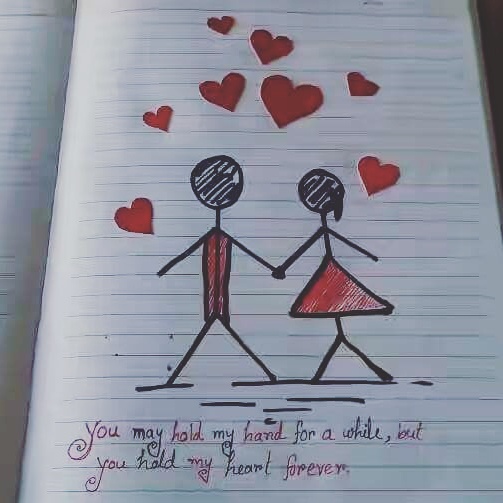 You may hold my hand for a while, but
you hold my heart forever.